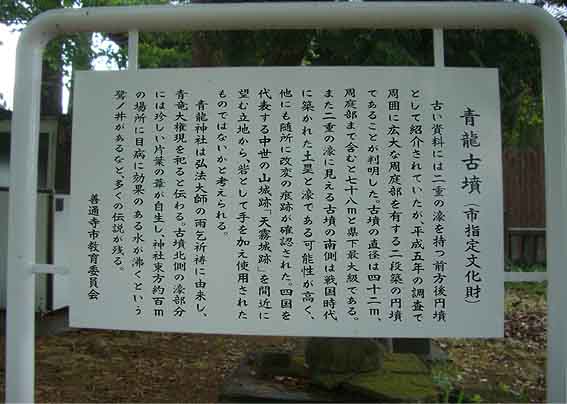 青龍古墳（市指定文化財）
古い資料には二重の濠を持つ前方後円墳
として紹介されていたが、平成五年の調査で
周囲に広大な周庭部を有する二段築の円墳
であることが判明した。古墳の直径は四十二m、
周庭部まで含むと七十八mと県下最大級である。
また二重の濠に見える古墳の南側は戦国時代
に築かれた土塁と濠である可能性が高く、
他にも随所に改変の痕跡が確認された。四国を
代表する中世の山城跡「天霧城跡」を間近に
望む立地から、砦として手を加え使用された
ものではないかと考えられる。
青龍神社は弘法大師の雨乞祈祷に由来し、
青竜大権現を祀ると伝わる。古墳北側の濠部分
には珍しい片葉の葦が自生し、神社東方約百m
の場所に目病に効果のある水が沸くという
鷺ノ井があるなど、多くの伝説が残る。
善通寺市教育委員会